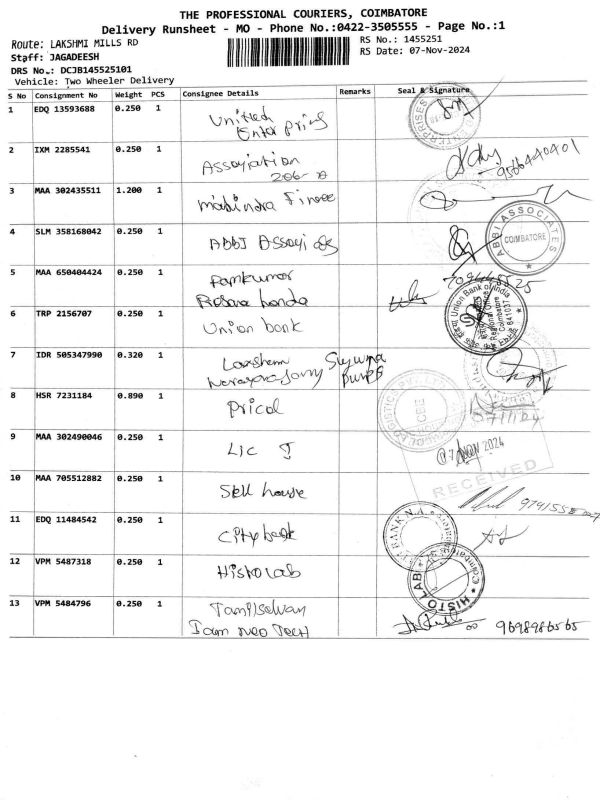 THE PROFESSIONAL COURIERS, COIMBATORE
Delivery Runsheet - MO - Phone No.:0422-3505555 - Page No.:1
Route: LAKSHMI MILLS RD
RS No.: 1455251
Staff: JAGADEESH
RS Date: 07-Nov-2024
DRS No.: DCJB145525101
Vehicle: Two Wheeler Delivery
S No Consignment No Weight PCS Consignee Details Remarks Seal & Signature
1 EDQ 13593688 0.250 1 United
Enterprises
2 IXM 2285541 0.250 1 Association
206-
9566440401
3 MAA 302435511 1.200 1 mahindra Finance
4 SLM 358168042 0.250 1 ABBI Associates
ABBI ASSOCIATES
COIMBATORE
5 MAA 650404424 0.250 1 Ramkumar
honda
6 TRP 2156707 0.250 1 Union bank
Union Bank of India
Regional Office
Coimbatore
641037
7 IDR 505347990 0.320 1 Lakshmi
8 HSR 7231184 0.890 1 Pricol
9 MAA 302490046 0.250 1 LIC
07 NOV 2024
RECEIVED
10 MAA 705512882 0.250 1 house
11 EDQ 11484542 0.250 1 City bank
BANK N.A.
12 VPM 5487318 0.250 1 Histo Lab
HISTO LAB
Coimbatore
13 VPM 5484796 0.250 1 Tamilselvan
Tech
9698986565